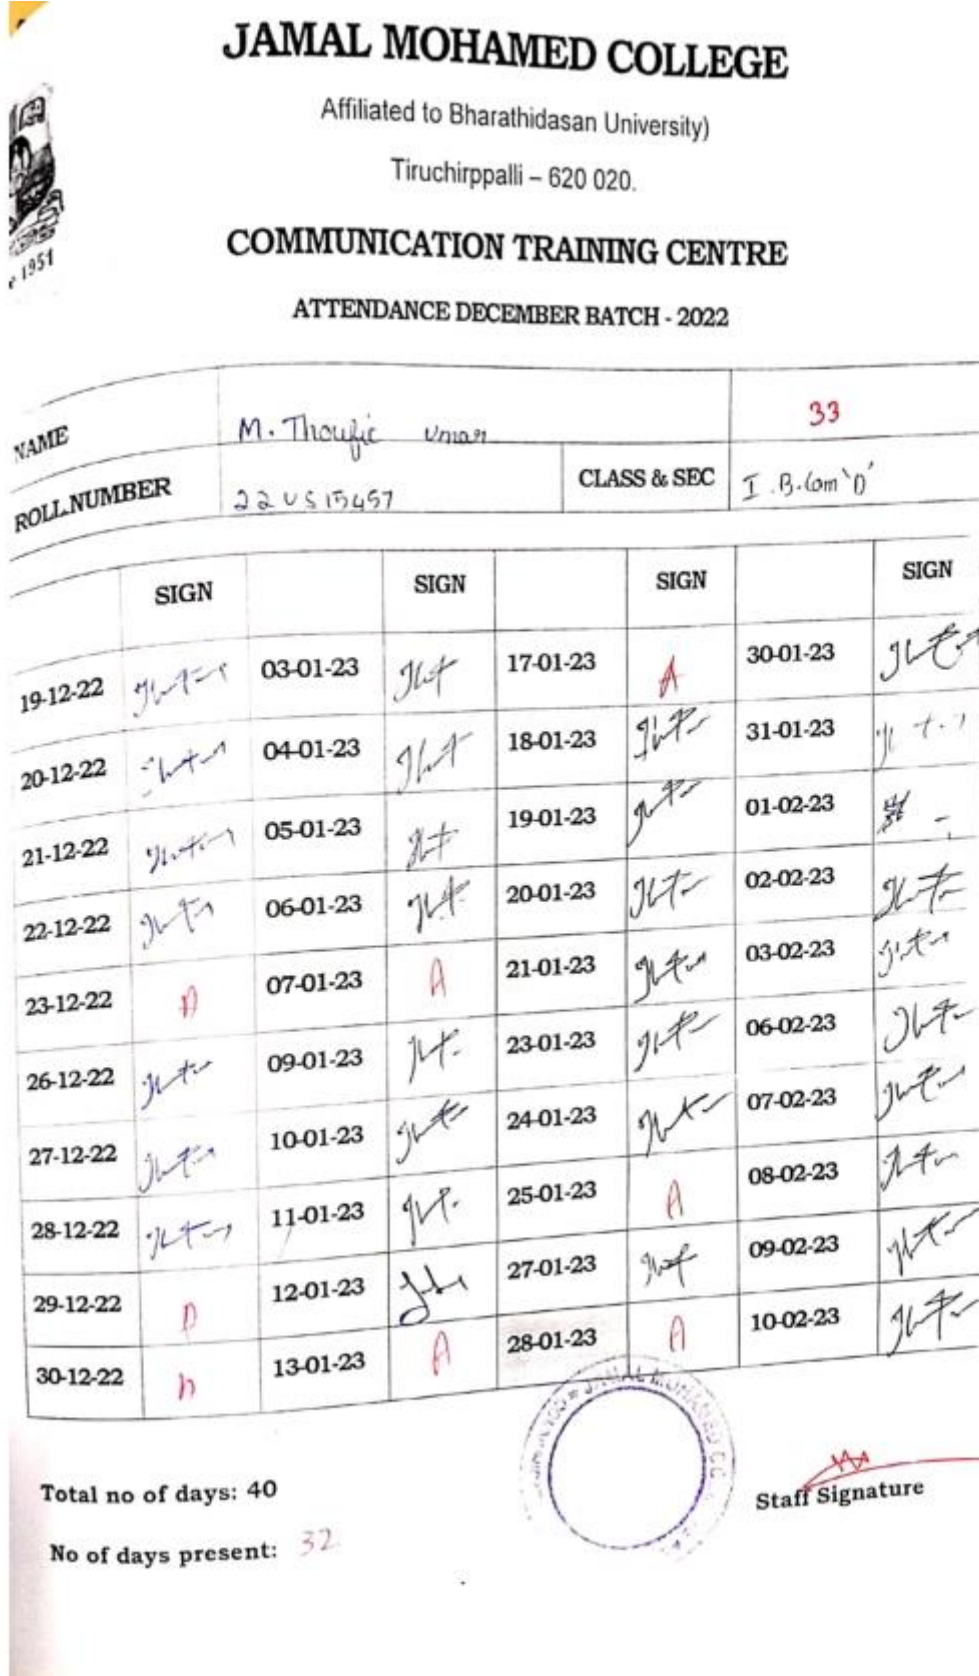 JAMAL MOHAMED COLLEGE
Affiliated to Bharathidasan University)
Tiruchirppalli – 620 020.
COMMUNICATION TRAINING CENTRE
1951
ATTENDANCE DECEMBER BATCH - 2022
NAME M. Thoufic Umar 33
ROLL NUMBER 22US15457 CLASS & SEC I. B.Com 'D'
SIGN SIGN SIGN SIGN
19-12-22 03-01-23 17-01-23 A 30-01-23
20-12-22 04-01-23 18-01-23 31-01-23
21-12-22 05-01-23 19-01-23 01-02-23
22-12-22 06-01-23 20-01-23 02-02-23
23-12-22 A 07-01-23 A 21-01-23 03-02-23
26-12-22 09-01-23 23-01-23 06-02-23
27-12-22 10-01-23 24-01-23 07-02-23
28-12-22 11-01-23 25-01-23 A 08-02-23
29-12-22 A 12-01-23 27-01-23 09-02-23
30-12-22 A 13-01-23 A 28-01-23 A 10-02-23
JAMAL MOHAMED
Total no of days: 40
Staff Signature
No of days present: 32